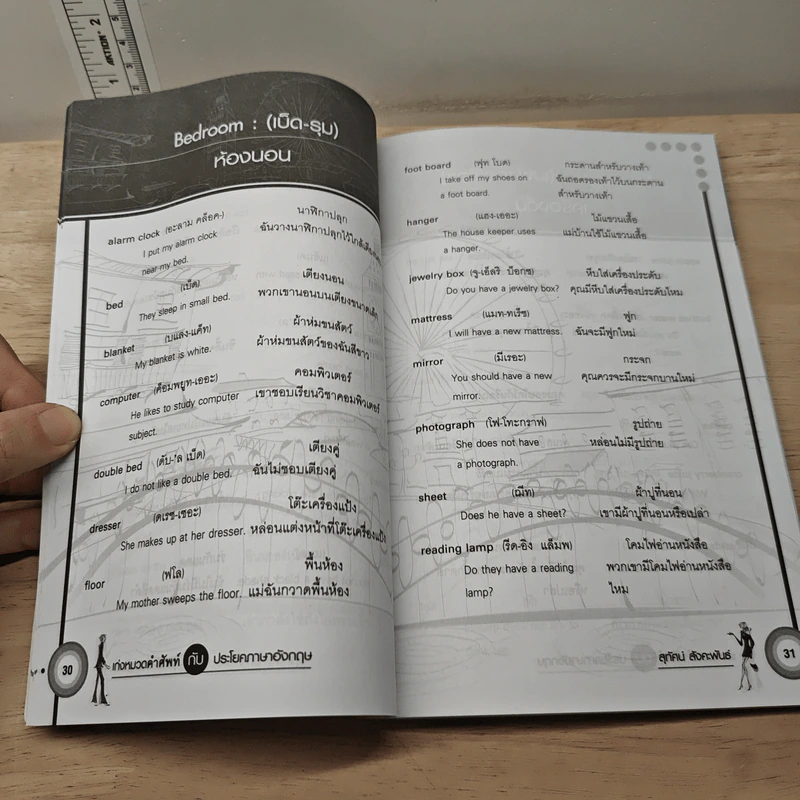 ACTION
1
2
Bedroom : (เบ็ด-รุม)
ห้องนอน
alarm clock (อะลาม คล็อค-) นาฬิกาปลุก
I put my alarm clock ฉันวางนาฬิกาปลุกไว้ใกล้เตียง
near my bed.
bed (เบ็ด) เตียงนอน
They sleep in small bed. พวกเขานอนบนเตียงขนาดเล็ก
blanket (แบลง-แค็ท) ผ้าห่มขนสัตว์
My blanket is white. ผ้าห่มขนสัตว์ของฉันสีขาว
computer (ค็อมพยูท-เออะ) คอมพิวเตอร์
He likes to study computer เขาชอบเรียนวิชาคอมพิวเตอร์
subject.
double bed (ดับ-'ล เบ็ด) เตียงคู่
I do not like a double bed. ฉันไม่ชอบเตียงคู่
dresser (ดเรซ-เซอะ) โต๊ะเครื่องแป้ง
She makes up at her dresser. หล่อนแต่งหน้าที่โต๊ะเครื่องแป้ง
floor (ฟโล) พื้นห้อง
My mother sweeps the floor. แม่ฉันกวาดพื้นห้อง
30 เก่งหมวดคำศัพท์ กับ ประโยคภาษาอังกฤษ
foot board (ฟุท โบด) กระดานสำหรับวางเท้า
I take off my shoes on ฉันถอดรองเท้าไว้บนกระดาน
a foot board. สำหรับวางเท้า
hanger (แฮง-เออะ) ไม้แขวนเสื้อ
The house keeper uses แม่บ้านใช้ไม้แขวนเสื้อ
a hanger.
jewelry box (จู-เอ็ลริ บ็อกซ) หีบใส่เครื่องประดับ
Do you have a jewelry box? คุณมีหีบใส่เครื่องประดับไหม
mattress (แมท-ทเร็ซ) ฟูก
I will have a new mattress. ฉันจะมีฟูกใหม่
mirror (มีเรอะ) กระจก
You should have a new คุณควรจะมีกระจกบานใหม่
mirror.
photograph (โฟ-โทะกราฟ) รูปถ่าย
She does not have หล่อนไม่มีรูปถ่าย
a photograph.
sheet (ฌีท) ผ้าปูที่นอน
Does he have a sheet? เขามีผ้าปูที่นอนหรือเปล่า
reading lamp (รีด-อิง แล็มพ) โคมไฟอ่านหนังสือ
Do they have a reading พวกเขามีโคมไฟอ่านหนังสือ
lamp? ไหม
สุทัศน์ สังคะพันธ์ 31